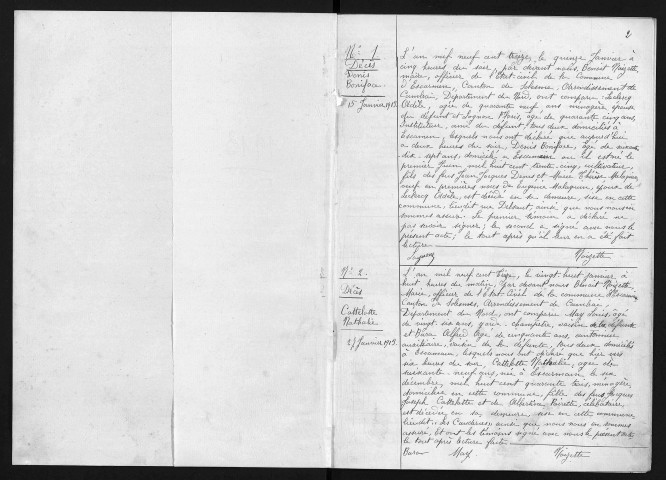 2
N° 1
Décès
Denis
Boniface
15 Janvier 1913.
L'an mil neuf cent treize, le quinze Janvier à
cinq heures du soir, par devant nous, Benoit Noizette
maire, officier de l'état civil de la commune
d'Escarmain, Canton de Solesmes, Arrondissement de
Cambrai, Département du Nord, ont comparu Leclercq
Adèle, âgée de quarante neuf ans ménagère, épouse
du défunt et Loguon âgé de quarante cinq ans,
Instituteur, ami du défunt, tous deux domiciliés à
Escarmain, lesquels nous ont déclaré que aujourd'hui
à deux heures du soir, Denis Boniface, âgé de soixante
dix-sept ans, domicilié à Escarmain où il est né le
premier Juin mil huit cent trente-cinq, cultivateur,
fils des feus Jean Jacques Denis et Marie Thérèse
veuf en premières noces de Eugénie époux de
Leclercq Adèle, est décédé en sa demeure, sise en cette
commune, lieudit rue ainsi que nous nous en
sommes assuré. Le premier témoin a déclaré ne
pas savoir signer; le second a signé avec nous le
présent acte; le tout après qu'il leur en a été fait
lecture.
Noizette
N° 2.
Décès
Cattelotte
Nathalie
27 Janvier 1913.
L'an mil neuf cent treize, le vingt huit Janvier à
huit heures du matin, par devant nous Benoit Noizette
Maire, officier de l'Etat-Civil de la commune d'Escarmain
Canton de Solesmes, Arrondissement de Cambrai,
Département du Nord, ont comparu May Louis, âgé
de vingt six ans, garde-champêtre, voisin de la défunte
et Bara Alfred âgé de cinquante ans, cantonnier
auxiliaire, voisin de la défunte, tous deux domiciliés
à Escarmain, lesquels nous ont déclaré que hier vers
six heures du soir, Cattelotte Nathalie, âgée de
soixante-neuf ans, née à Escarmain le six
décembre, mil huit cent quarante trois, ménagère,
domiciliée en cette commune, fille des feus Jacques
Joseph Cattelotte et de Albertine célibataire,
est décédée en sa demeure, sise en cette commune
lieudit ainsi que nous nous en sommes
assuré, et ont les témoins signé avec nous le présent acte
le tout après lecture faite.
Bara May Noizette